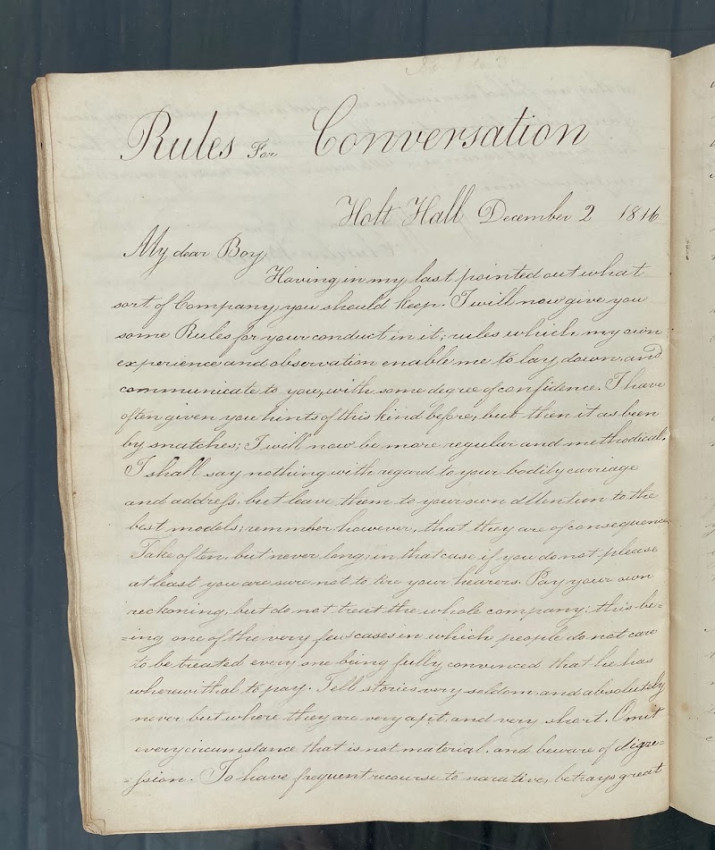 Rules For Conversation
Holt Hall December 2 1816
My dear Boy,
Having in my last pointed out what
sort of Company, you should keep. I will now give you
some Rules for your conduct in it; rules which my own
experience and observation enable me to lay down, and
communicate to you, with some degree of confidence. I have
often given you hints of this kind before, but then it as been
by snatches; I will now be more regular and methodical.
I shall say nothing with regard to your bodily carriage
and address, but leave them to your own attention to the
best models; remmber however, that they are of consequence
Take often, but never long; in that case if you do not please
at least you are sure not to tire your hearers. Pay your own
reckoning, but do not treat the whole company; this be-
-ing one of the very few cases in which people do not care
to be treated every one being fully convinced that he has
wherewithal to pay. Tell stories very seldom, and absolutely
never but where they are very apt, and very short. Omit
every circumstance that is not material, and beware of digre-
-ssion. To have frequent recourse to narative, betrays great